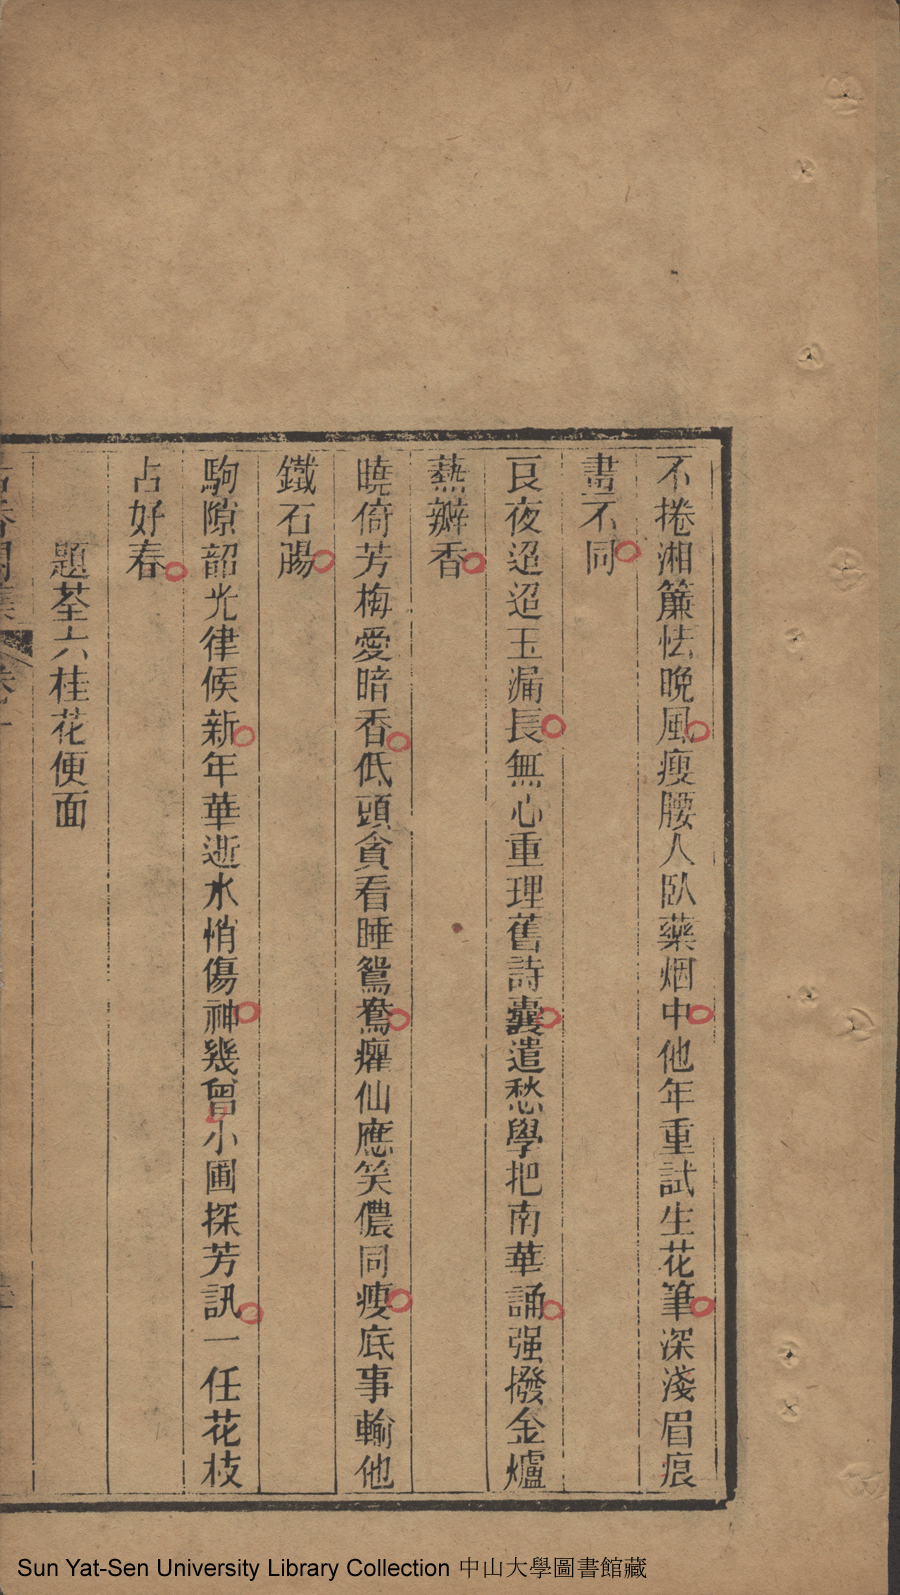 不捲湘簾怯晚風瘦腰人臥藥烟中他年重試生花筆深淺眉痕
畫不同
良夜迢迢玉漏長無心重理舊詩囊遣愁學把南華誦强撥金爐
熱瓣香
曉倚芳梅愛暗香低頭貪看睡鴛鴦癯仙應笑儂同瘦底事輸他
鐵石腸
駒隙韶光律候新年華逝水悄傷神幾曾小圃探芳訊一任花枝
占好春
題荃六桂花便面
Sun Yat-Sen University Library Collection 中山大學圖書館藏